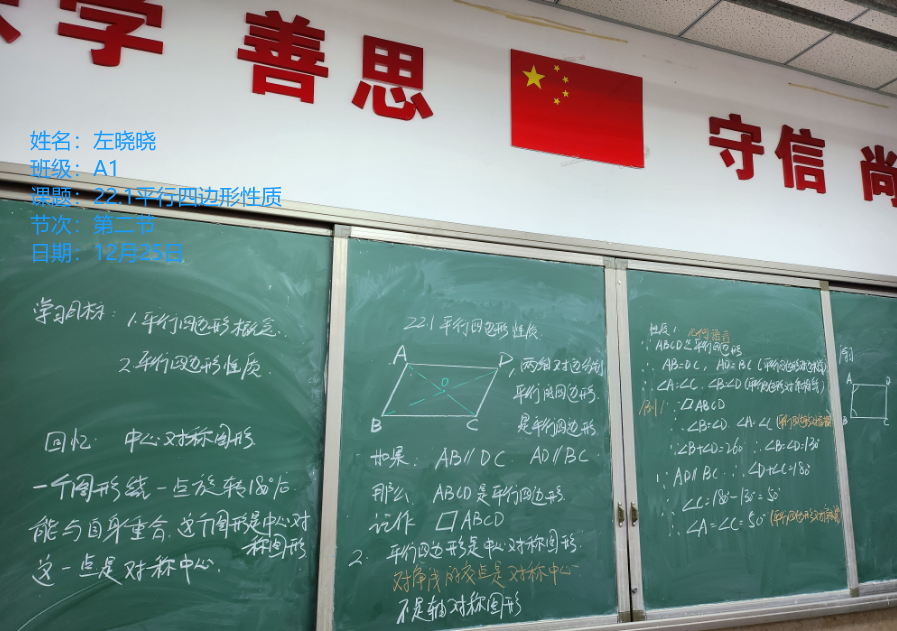 学 善 思
守信 尚
姓名：左晓晓
班级：A1
课题：22.1平行四边形性质
节次：第二节
日期：12月25日
学习目标：1.平行四边形概念.
2.平行四边形性质.
回忆：中心对称图形
一个图形绕一点旋转180°后
能与自身重合,这个图形是中心对
称图形
这一点是对称中心.
22.1平行四边形性质.
A D
O
B C
两组对边分别
平行的四边形.
是平行四边形
如果. AB∥DC AD∥BC
那么 ABCD是平行四边形.
记作 ▱ABCD
2. 平行四边形是中心对称图形.
对角线的交点是对称中心
不是轴对称图形
性质1 几何语言
∵ABCD是平行四边形
∴AB=DC, AD=BC (平行四边形对边相等)
∴∠A=∠C, ∠B=∠D (平行四边形对角相等)
例1 ∵▱ABCD
∴∠B=∠D ∠A=∠C
∵∠B+∠D=260° ∴∠B=∠D=130°
∵AD∥BC ∴∠D+∠C=180°
∴∠C=180°-130°=50°
∴∠A=∠C=50° (平行四边形对角相等)
A D
B C